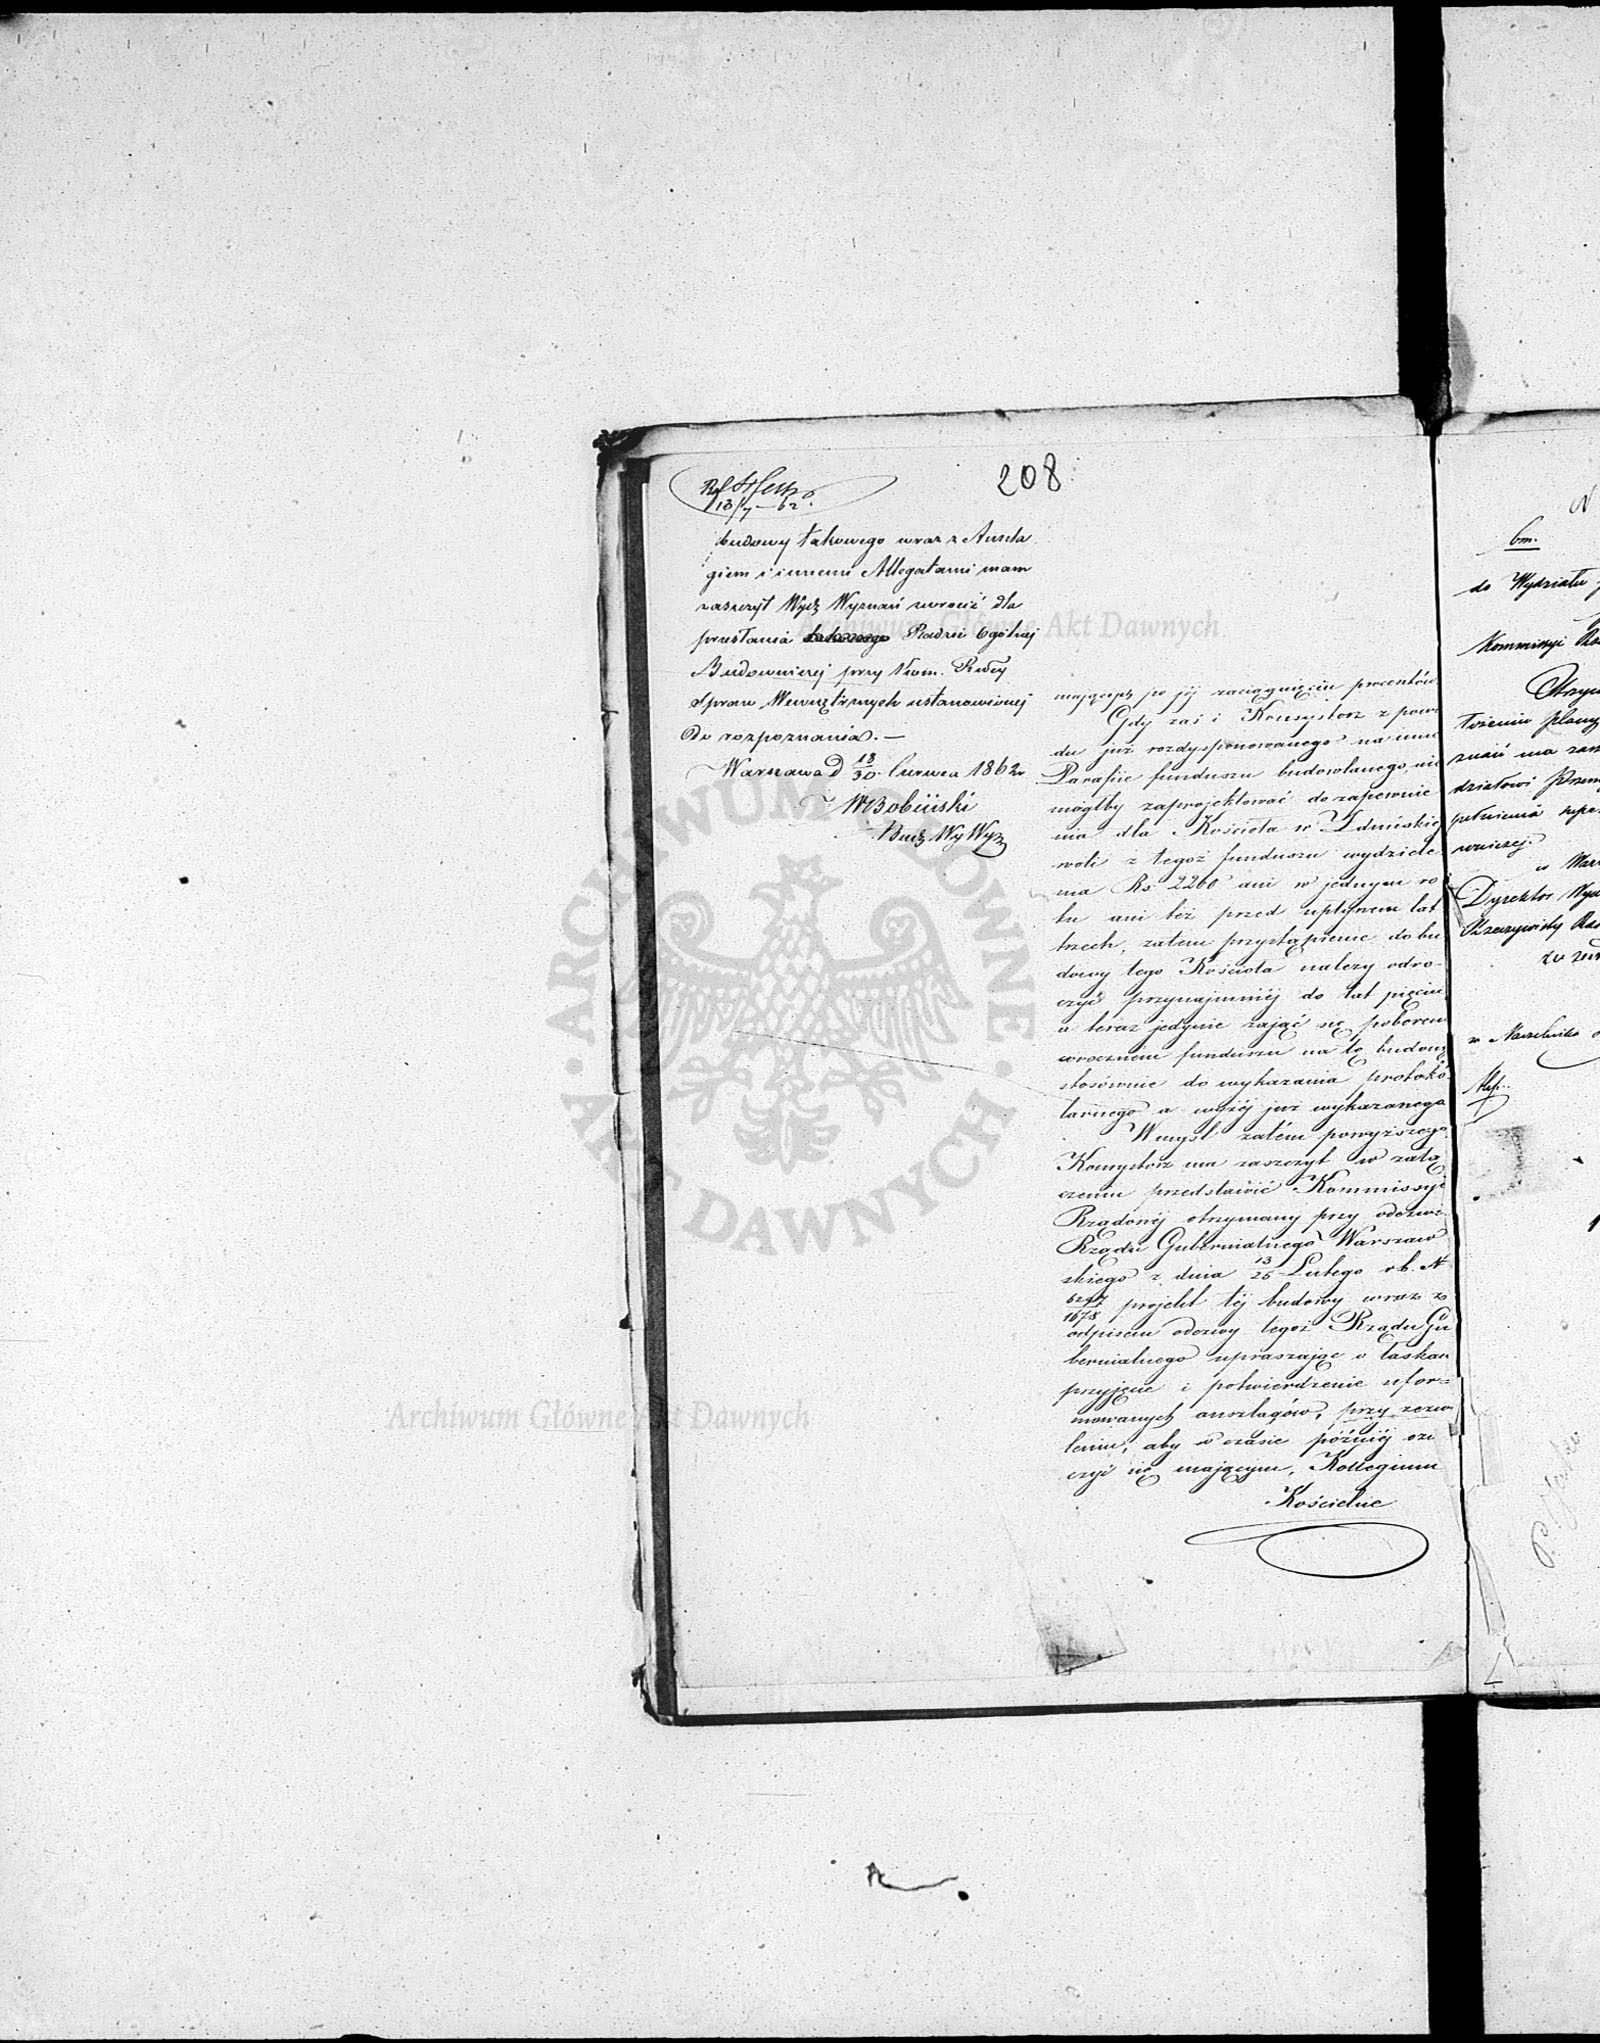 208
Ref
13/7 – 62.
budowy takowego wraz z Anszla
giem i innemi Allegatami mam
zaszczyt Wydz Wyznań zwrócić dla
przesłania Radzie Ogólnej
Budowniczej przy Kom. Rządy
Spraw Wewnętrznych ustanowionej
do rozpoznania. —
Warszawa d 18/30 Czerwca 1862 r
WBobiński
Bud. Wy Wyz
mających po jéj zaciągnięciu procentów
Gdy zaś i Konsystorz z powo
du już rozdysponowanego na inne
Parafije funduszu budowlanego, nie
mógłby zaprojektować do zapewnie
nia dla Kościoła w Zduńskiej
woli z tegoż funduszu wydziele
nia Rs: 2260 ani w jednym ro
ku ani też przed upływem lat
trzech, zatem przystąpienie do bu
dowy tego Kościoła należy odro-
czyć przynajmniéj do lat pięciu,
a teraz jedynie zająć się poborem
corocznem funduszu na tę budowę
stosównie do wykazania protokó-
larnego a wyżéj już wykazanego
W myśl zatém powyższego
Konsystorz ma zaszczyt w załą
czeniu przedstawić Kommissyi
Rządowéj otrzymany przy odezwie
Rządu Gubernialnego Warszaw
skiego z dnia 13/25 Lutego rb. N
6247/1678 projekt téj budowy wraz z
odpisem odezwy tegoż Rządu Gu
bernialnego upraszając o łaskaw
przyjęcie i potwierdzenie ufor=
mowanych anszlagów, przy zezwo
leniu, aby w czasie późniéj ozn
czyć się mającym, Kollegium
Kościelne
N
bm.
do Wydziału
Kommissyi
Otrzym
dziełowi Przem
pełnienia
w War
Dyrektor Wyd
Rzeczywisty Rad
za Naczelnika
Archiwum Główne Akt Dawnych
Archiwum Główne Akt Dawnych
ARCHIWUM GŁÓWNE · AKT DAWNYCH ·